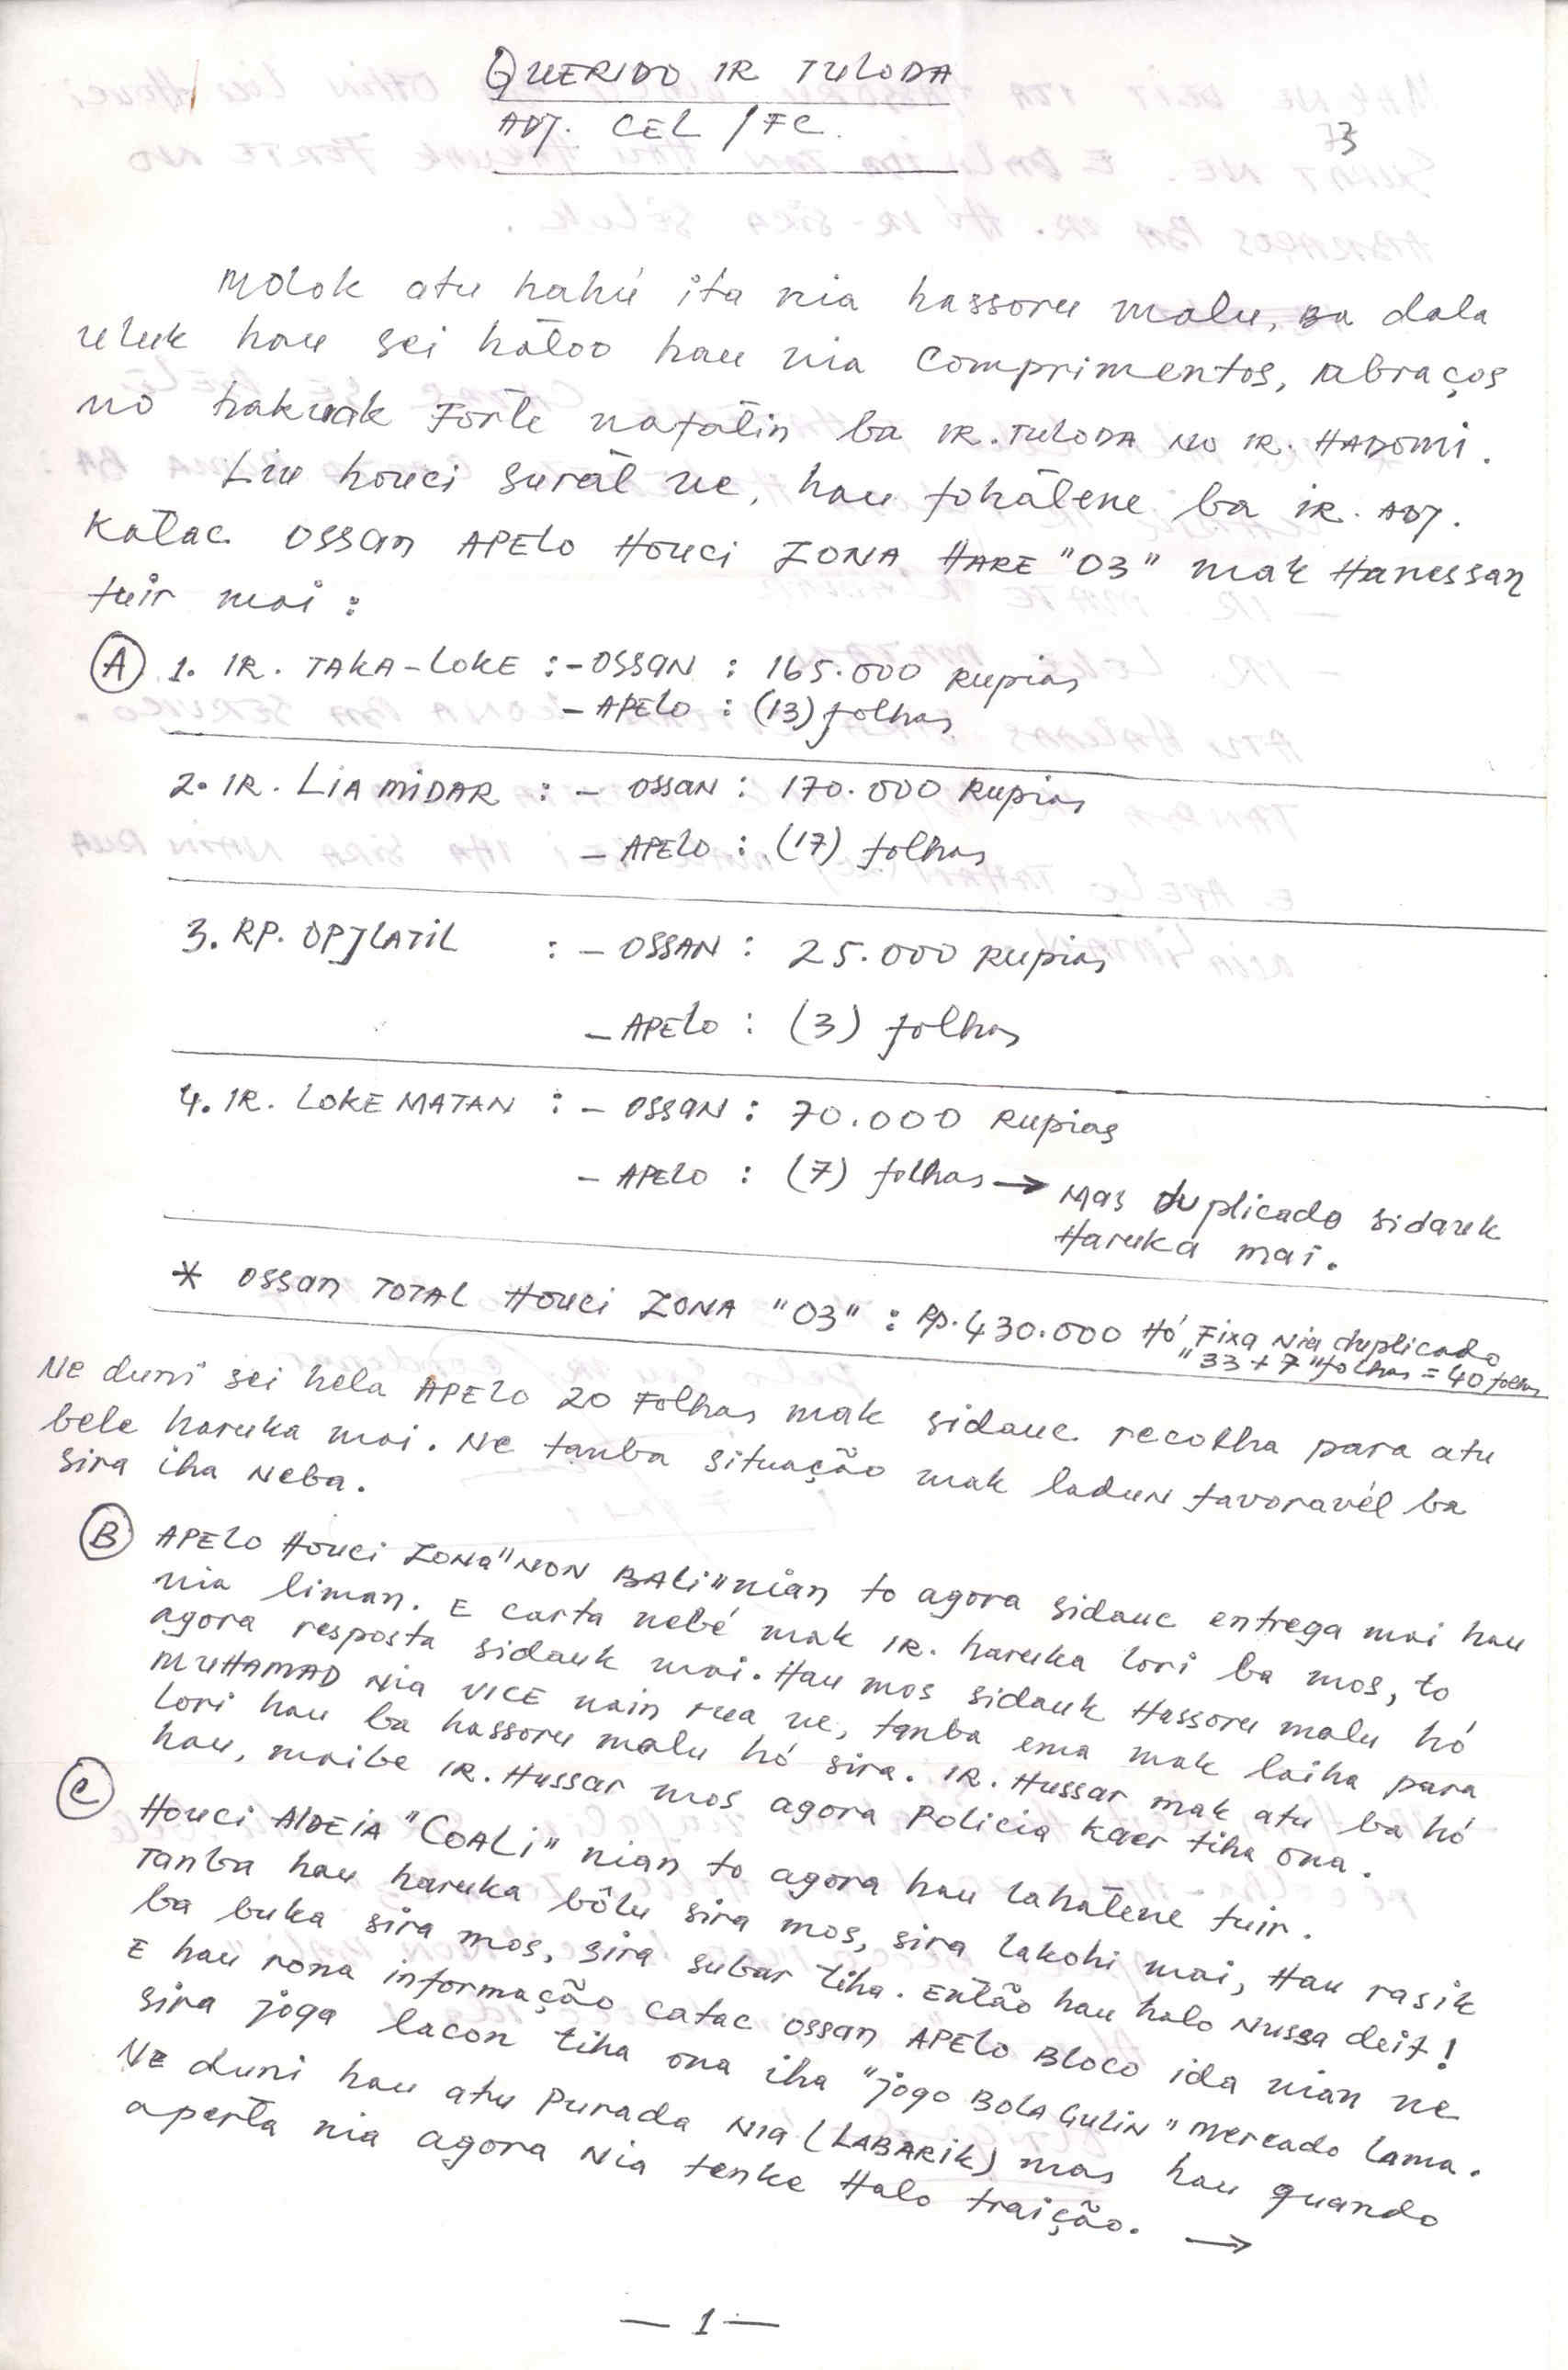 QUERIDO IR TULODA
ADJ. CEL / FC.
73
Molok atu hahú ita nia hassoru malu, ba dala
uluk hau sei hátoo hau nia Comprimentos, abraços
no hakuak Forte natátin ba IR. TULODA NO IR. HADOMI.
Liu houci surat ne, hau fohátene ba IR. ADJ.
Katac OSSAN APELO HOUCI ZONA HARE "03" mak Hanessan
tuir mai :
(A) 1. IR. TAKA-LOKE : - OSSAN : 165.000 Rupias
- APELO : (13) folhas
2. IR. LIA MIDAR : - OSSAN : 170.000 Rupias
- APELO : (17) folhas
3. RP. OPJLATIL : - OSSAN : 25.000 Rupias
- APELO : (3) folhas
4. IR. LOKE MATAN : - OSSAN : 70.000 Rupias
- APELO : (7) folhas → Mas duplicado sidauk
Haruka mai.
* OSSAN TOTAL HOUCI ZONA "03" : Rp. 430.000 Hó Fixa Nia duplicado
"33 + 7" folhas = 40 folhas
Ne duni sei hela APELO 20 Folhas mak sidauc recolha para atu
bele haruka mai. Ne tanba situação mak ladun favoravél ba
sira iha Neba.
(B) APELO HOUCI ZONA "NON BALI" nian to agora sidauc entrega mai hau
nia liman. E carta nebé mak IR. haruka lori ba mos, to
agora resposta sidauk mai. Hau mos sidauk Hassoru malu hó
MUHAMAD Nia VICE nain rua ne, tanba ema mak laiha para
lori hau ba hassoru malu hó sira. IR. Hussar mak atu ba hó
hau, maibe IR. Hussar mos agora Policia kaer tiha ona.
(C) HOUCI ALDEIA "COALI" nian to agora hau lahátene tuir.
Tanba hau haruka bólu sira mos, sira lakohi mai, Hau rasik
ba buka sira mos, sira subar tiha. Então hau halo Nussa deit!
E hau rona informação catac OSSAN APELO BLOCO ida nian ne
sira joga lacon tiha ona iha "jogo BOLA GULIN" Mercado Lama.
NE duni hau atu Purada Nia (LABARIK) mas hau quando
aperta nia agora Nia tenke Halo traição. →
— 1 —